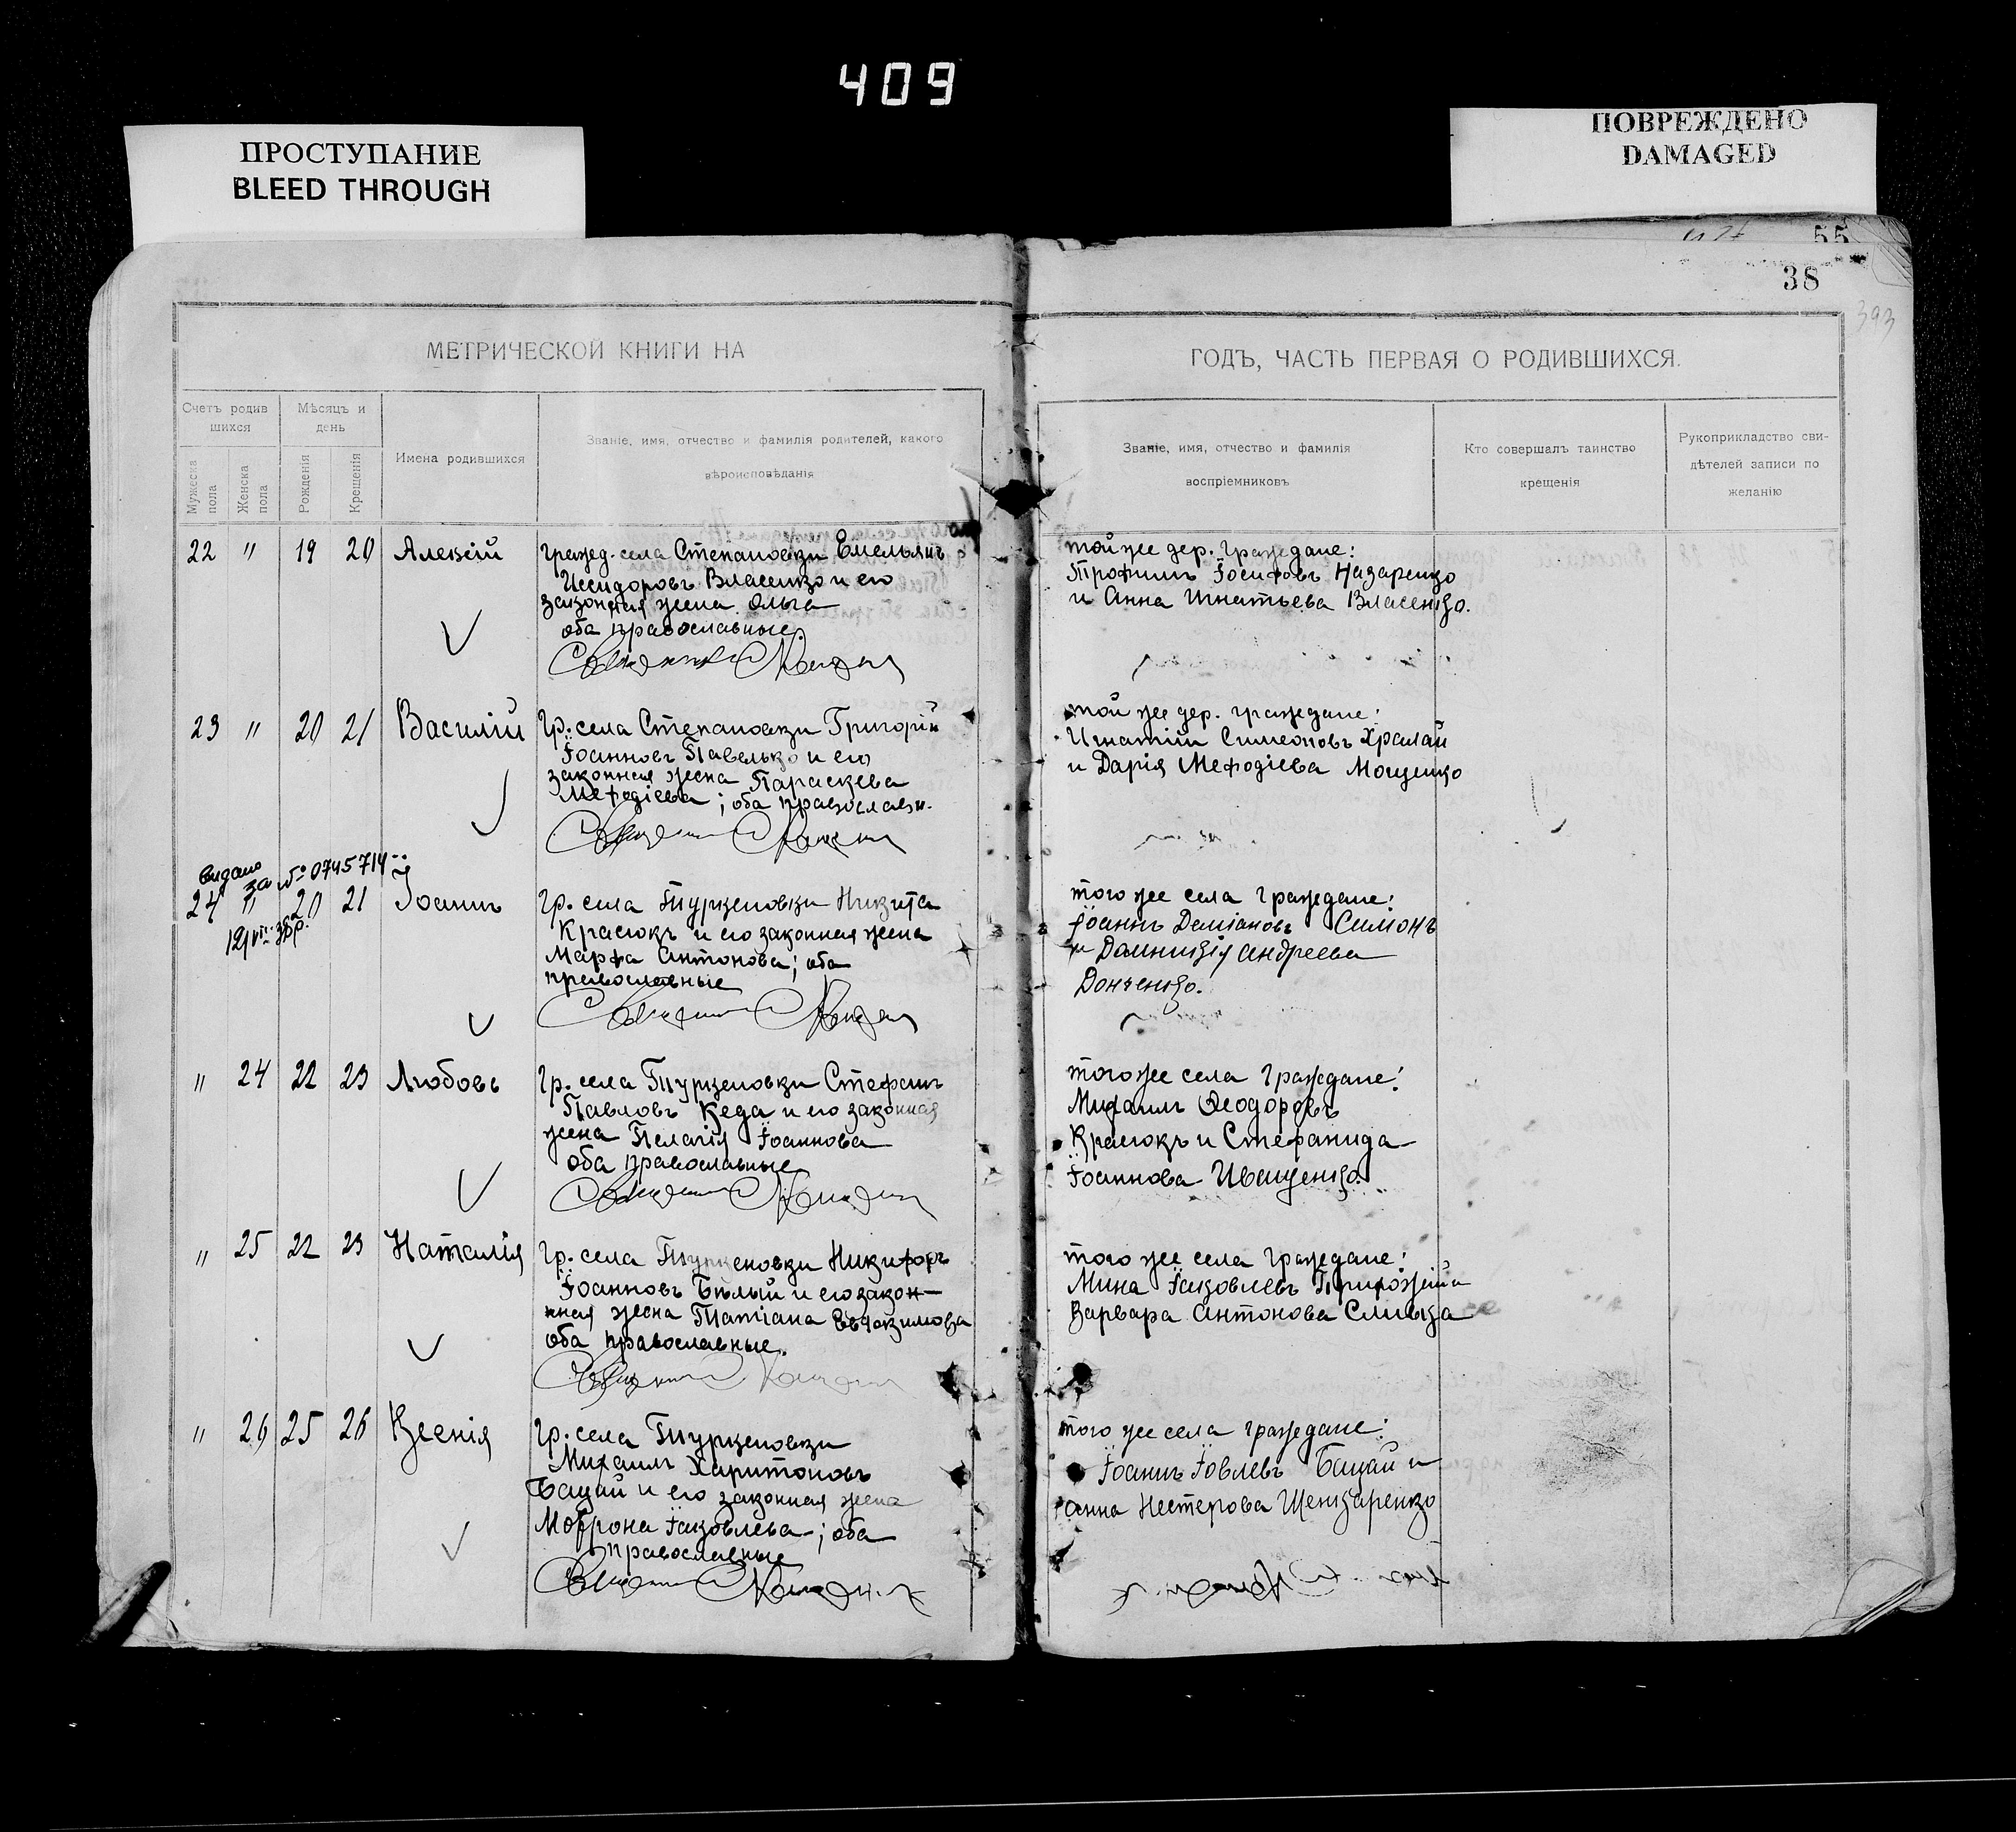 409
ПРОСТУПАНИЕ
BLEED THROUGH
ПОВРЕЖДЕНО
DAMAGED
55
38
393
МЕТРИЧЕСКОЙ КНИГИ НА
ГОДЪ, ЧАСТЬ ПЕРВАЯ О РОДИВШИХСЯ.
Счетъ родив
шихся
Мѣсяцъ и
день
Мужеска
пола
Женска
пола
Рожденія
Крещенія
Имена родившихся
Званіе, имя, отчество и фамилія родителей, какого
вѣроисповѣданія
Званіе, имя, отчество и фамилія
воспріемниковъ
Кто совершалъ таинство
крещенія
Рукоприкладство сви-
дѣтелей записи по
желанію
22 " 19 20 Алексій
гражд. села Степановки Емельянъ
Исидоровъ Власенко и его
законная жена Ольга
оба православные.
той же дер. граждане:
Трофимъ Іосифовъ Назаренко
и Анна Игнатьева Власенко.
23 " 20 21 Василій
Гр. села Степановки Григорій
Іоанновъ Павелько и его
законная жена Параскева
Мефодіева; оба православн.
той же дер. граждане:
Игнатій Симеоновъ Храпай
и Дарія Мефодіева Мощенко
видано
за № 0745714
24 " 20 21 Іоаннъ
Гр. села Туркеновки Никита
Красюкъ и его законная жена
Марфа Антонова; оба
православные
того же села граждане:
Іоаннъ Даміановъ Симонъ
и Домникія Андреева
Донченко.
" 24 22 23 Любовь
Гр. села Туркеновки Стефанъ
Павловъ Кеда и его законная
жена Пелагія Іоаннова
оба православные
того же села граждане:
Михаилъ Ѳеодоровъ
Красюкъ и Стефанида
Іоаннова Иващенко.
" 25 22 23 Наталія
Гр. села Туркеновки Никифоръ
Іоанновъ Бѣлый и его закон-
нная жена Татіана Евдокимова
оба православные.
того же села граждане:
Мина Іаковлевъ и
Варвара Антонова Сливка
" 26 25 26 Ксенія
Гр. села Туркеновки
Михаилъ Харитоновъ
Бацай и его законная жена
Мотрона Іаковлева; оба
православные
того же села граждане:
Іоаннъ Іовлевъ Бацай и
Анна Нестерова Шенкаренко